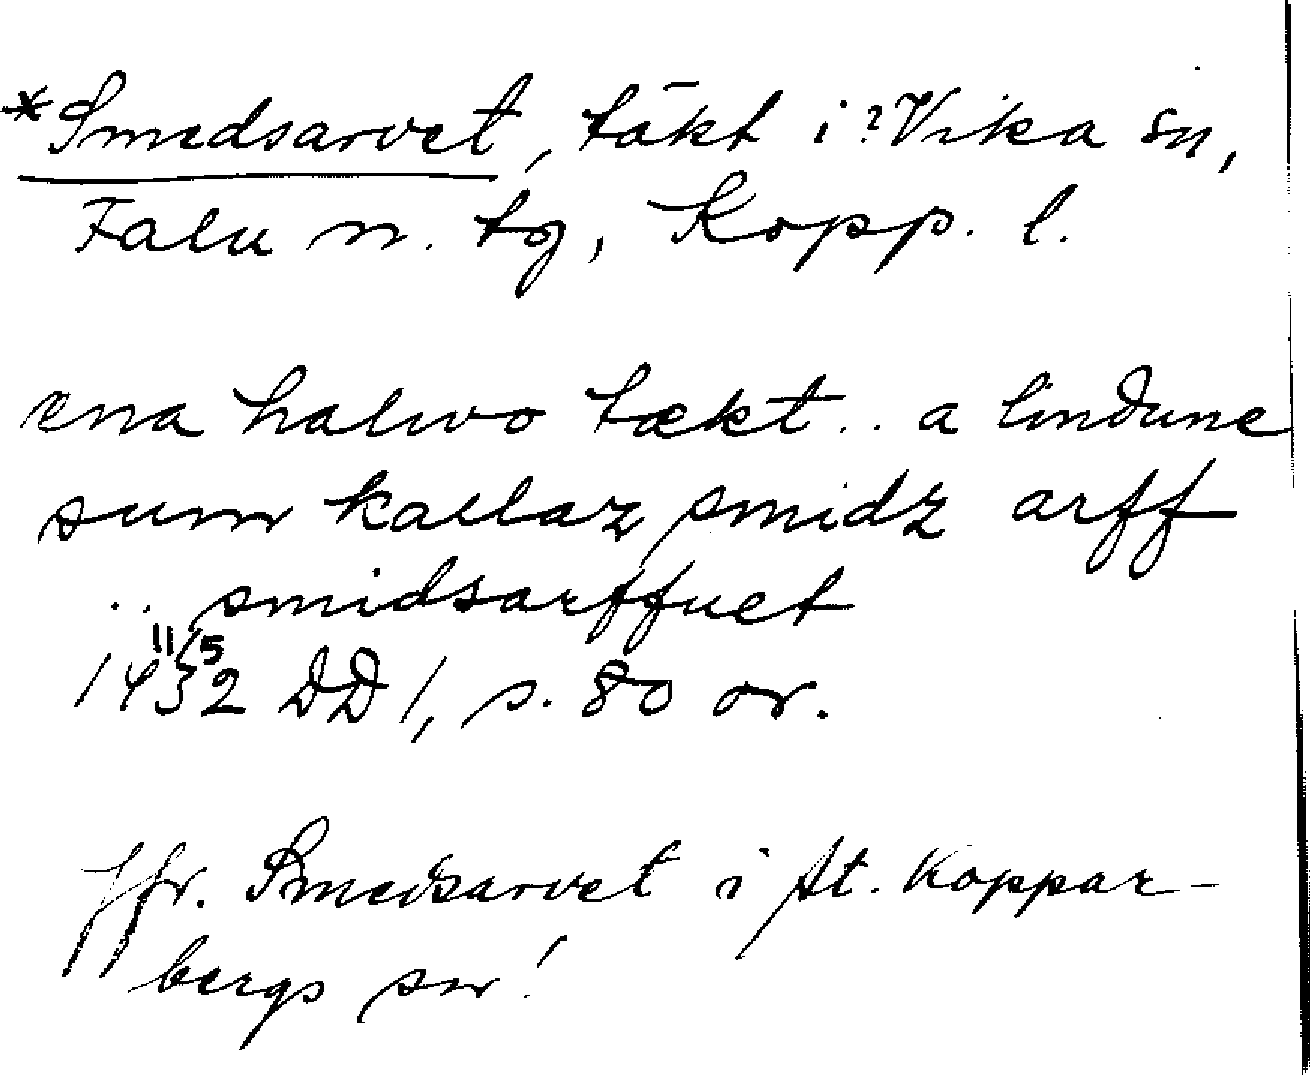 *Smedsarvet, täkt i ? Vika sn,
Falu n. tg, Kopp. l.
ena halwo tækt .. a lindune
sum kallaz smidz arff
.. smidsarffuet
1432 11/5 DD 1, s. 80 or.
Jfr. Smedsarvet i St. Koppar-
bergs sn!